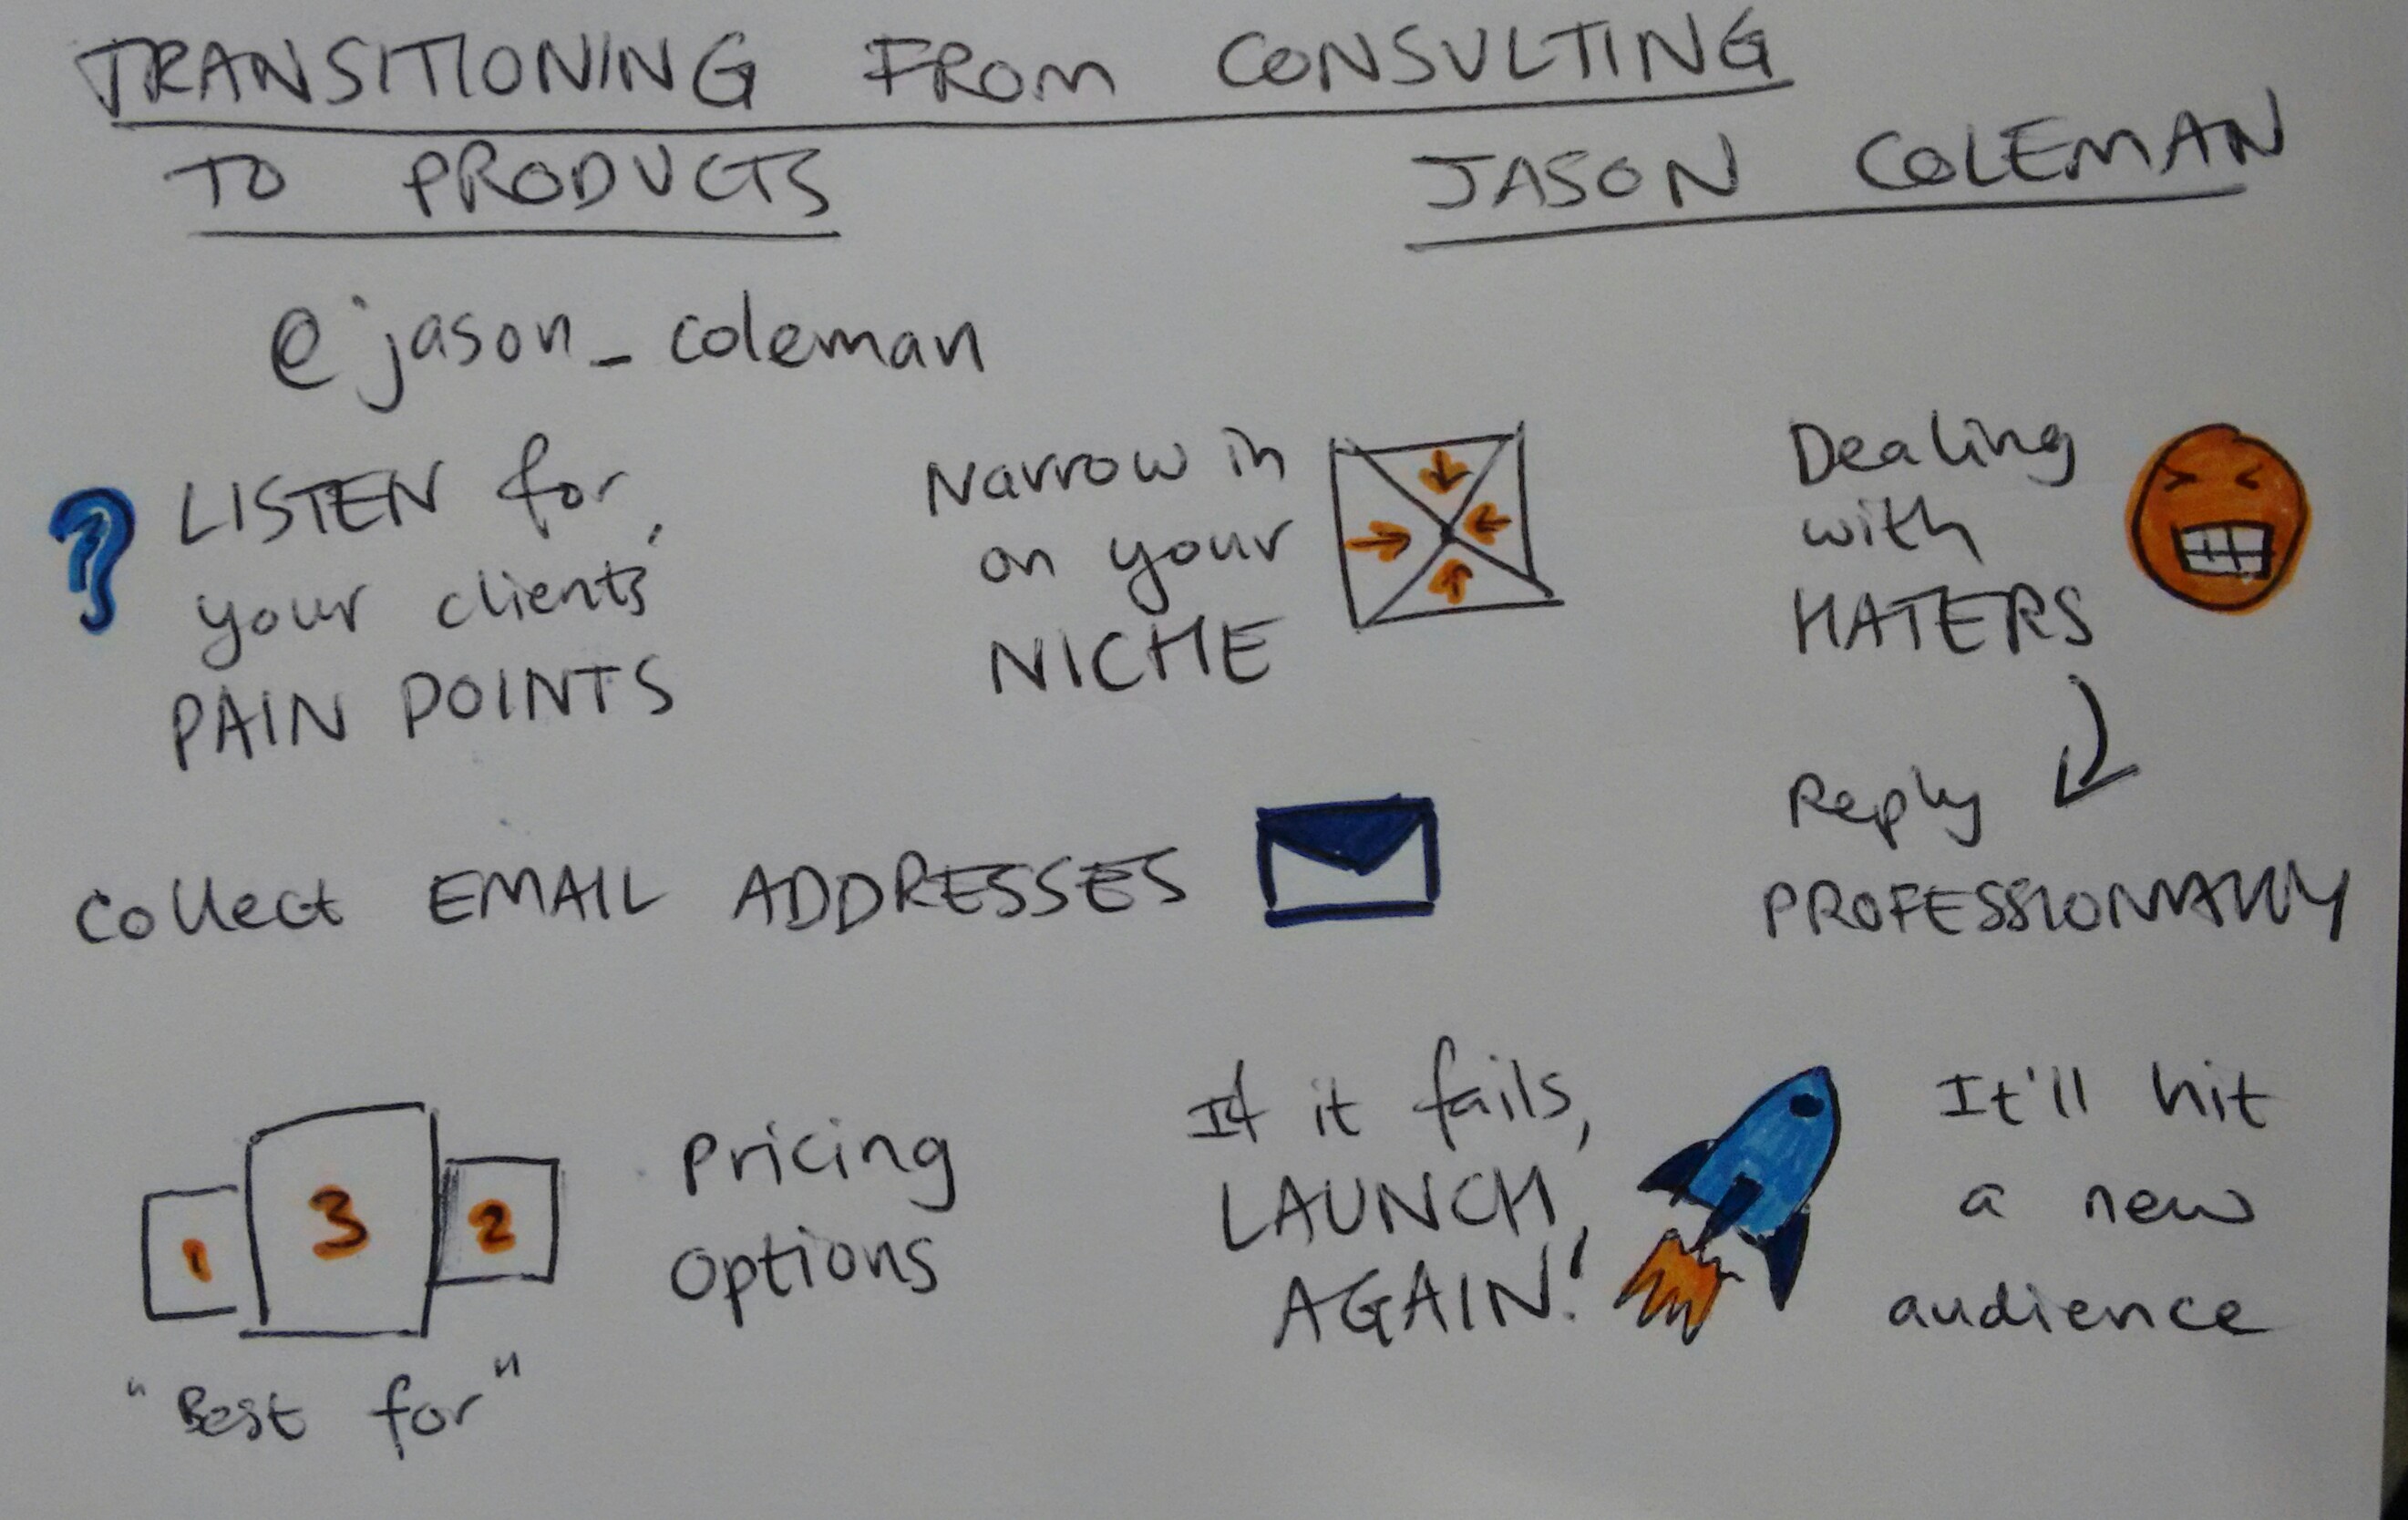 TRANSITIONING FROM CONSULTING
TO PRODUCTS
JASON COLEMAN
@jason_coleman
LISTEN for
your clients'
PAIN POINTS
Narrow in
on your
NICHE
Dealing
with
HATERS
Reply
PROFESSIONALLY
Collect EMAIL ADDRESSES
1 3 2
"Best for"
Pricing
Options
If it fails,
LAUNCH
AGAIN!
It'll hit
a new
audience